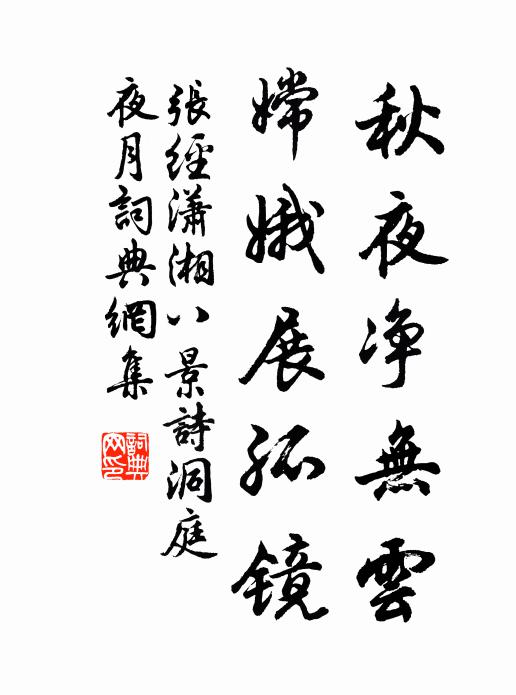 秋夜净無雲
嫦娥展孤镜
張經瀟湘八景詩洞庭
夜月詞典網集
詞典
网印